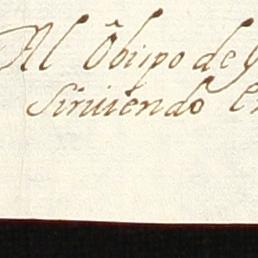 Al Obispo de
Siruiendo